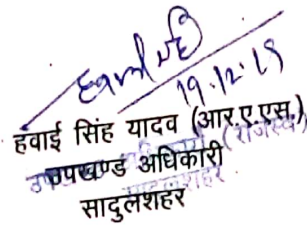 19.12.19
हवाई सिंह यादव (आर.ए.एस.)
उपखण्ड अधिकारी
सादुलशहर